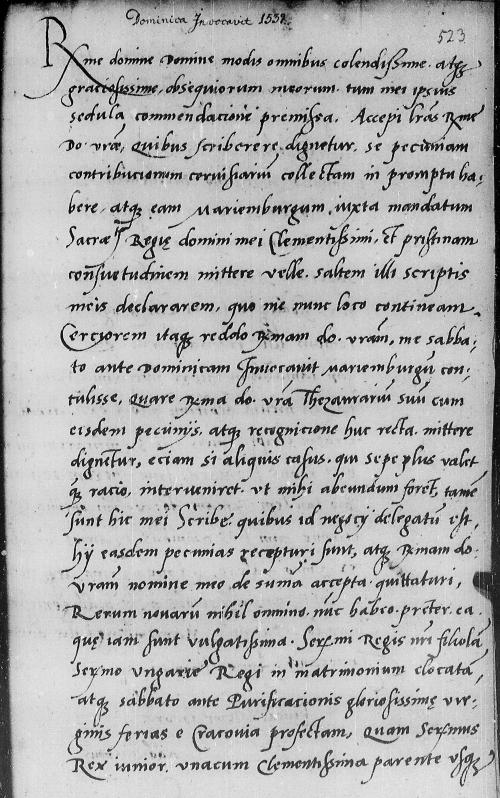 Dominica Invocavit 1539.
523
Rxme domine Domine modis omnibus colendissime. atqz
graciosissime, obsequiorum meorum. tum mei ipsius
sedula commendacione premissa. Accepi lras Rxme
Do. vræ, Quibus scriberere dignetur, se pecuniam
contribucionum cervisiariũ collectam in promptu ha-
bere, atqz eam Mariemburgum, iuxta mandatum
Sacræ Regię domini mei Clementissimi, Et pristinam
consuetudinem mittere velle. saltem illi scriptis
meis declararem, quo me nunc loco contineam.
Cerciorem itaqz reddo Rxmam do. vram, me sabba-
to ante Dominicam Invocavit Mariemburgũ con-
tulisse, Quare Rxma do. vra Thezaurariũ suũ cum
eisdem pecunijs, atqz recognicione huc recta. mittere
dignetur, eciam si aliquis casus. qui sepe plus valet
qz racio, interveniret. vt mihi abeundum foret, tamẽ
sunt hic mei Scribę quibus id negocÿ delegatũ est,
hÿ easdem pecunias recepturi sunt, atqz Rxmam do.
vram nomine meo de suma accepta quittaturi,
Rerum novarũ nihil omnino nũc habeo. preter. ea
quę iam sunt vulgatissima. Serxmi Regis nri filiolã
Serxmo vngarię Regi in matrimonium elocatã,
atqz sabbato ante Purificacionis gloriosissimę vir-
ginis ferias e Cracovia profectam, Quam Serxmus
Rex iunior, vnacum Clementissima parente vsqz